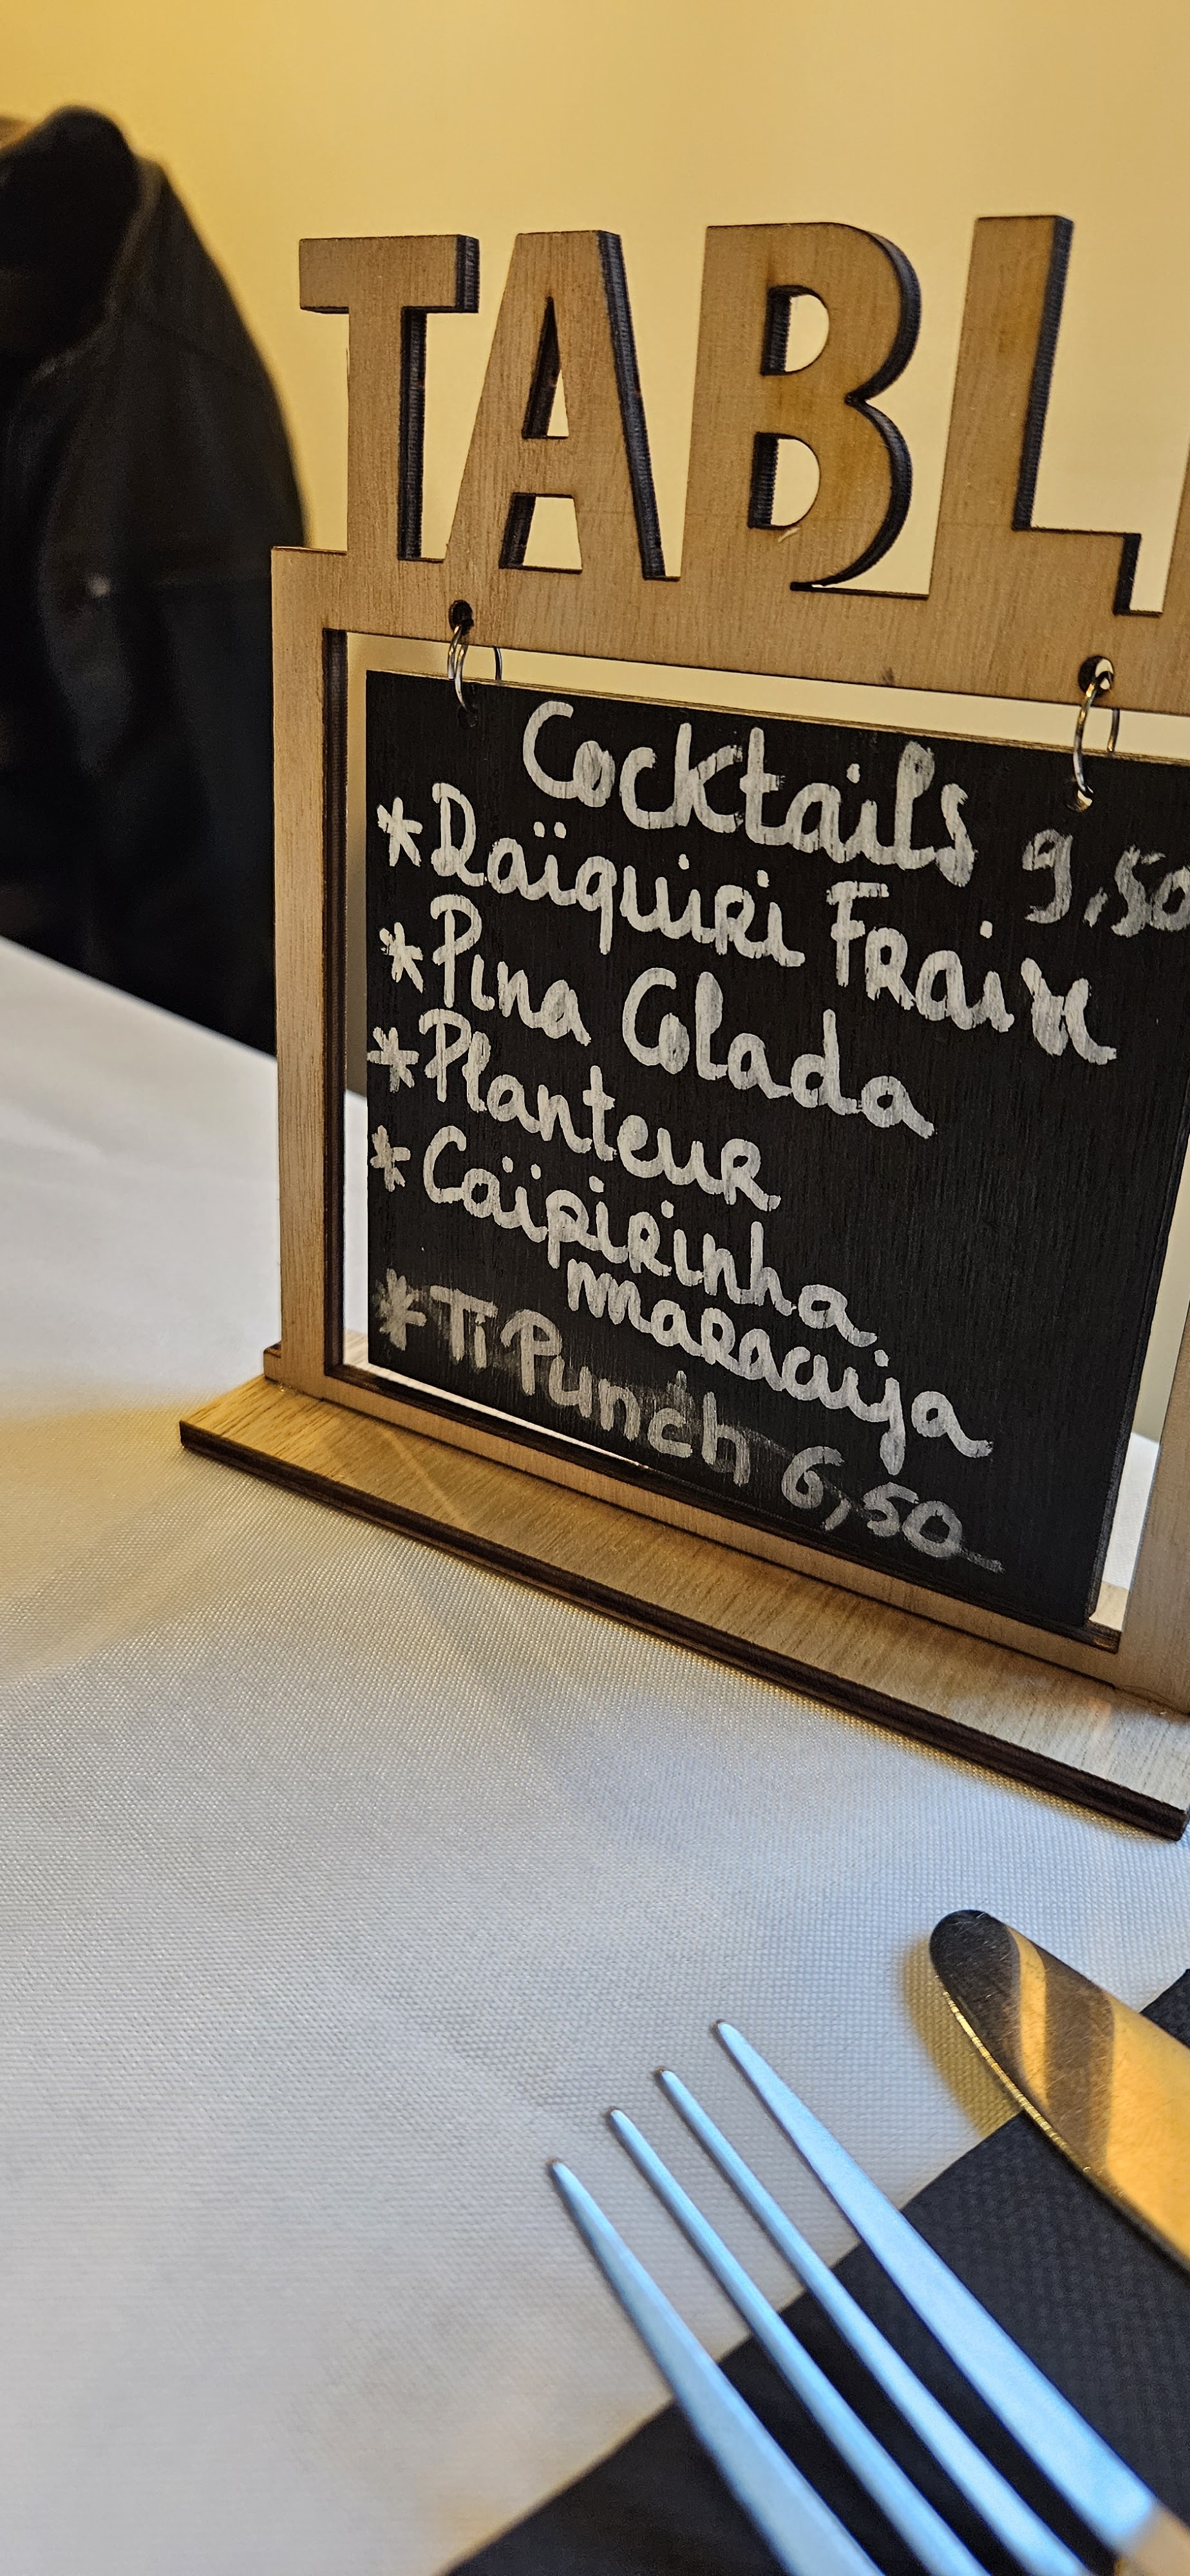 TABL
Cocktails 9,50
*Daïquiri Fraise
*Pina Colada
*Planteur
*Caïpirinha
maracuja
*Ti Punch 6,50